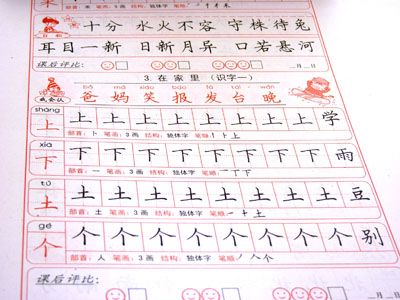 十分 水火不容 守株待兔
耳目一新 日新月异 口若悬河
课后评比: 月 日
3. 在家里(识字一)
我会认
bà mā xiào bào fā tái wǎn
爸 妈 笑 报 发 台 晚
shàng
上 上 上 上 上 上 上 上 上 学
部首: 卜 笔画: 3画 结构: 独体字 笔顺: 丨 卜 上
xià
下 下 下 下 下 下 下 下 下 雨
部首: 一 笔画: 3画 结构: 独体字 笔顺: 一 丅 下
tǔ
土 土 土 土 土 土 土 土 土 豆
部首: 土 笔画: 3画 结构: 独体字 笔顺: 一 十 土
gè
个 个 个 个 个 个 个 个 个 别
部首: 人 笔画: 3画 结构: 独体字 笔顺: 丿 人 个
课后评比: 月 日